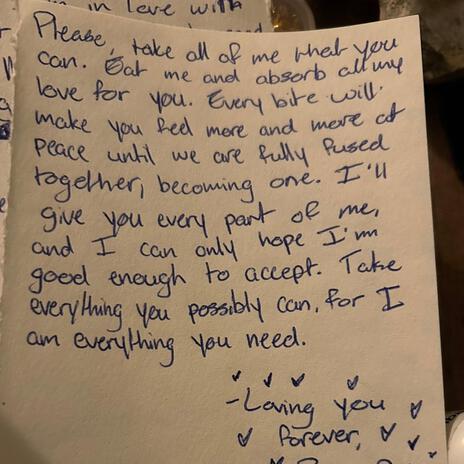 in love with
Please, take all of me that you
can. Eat me and absorb all my
love for you. Every bite will
make you feel more and more at
peace until we are fully fused
together, becoming one. I'll
give you every part of me,
and I can only hope I'm
good enough to accept. Take
everything you possibly can, for I
am everything you need.
-Loving you
forever,